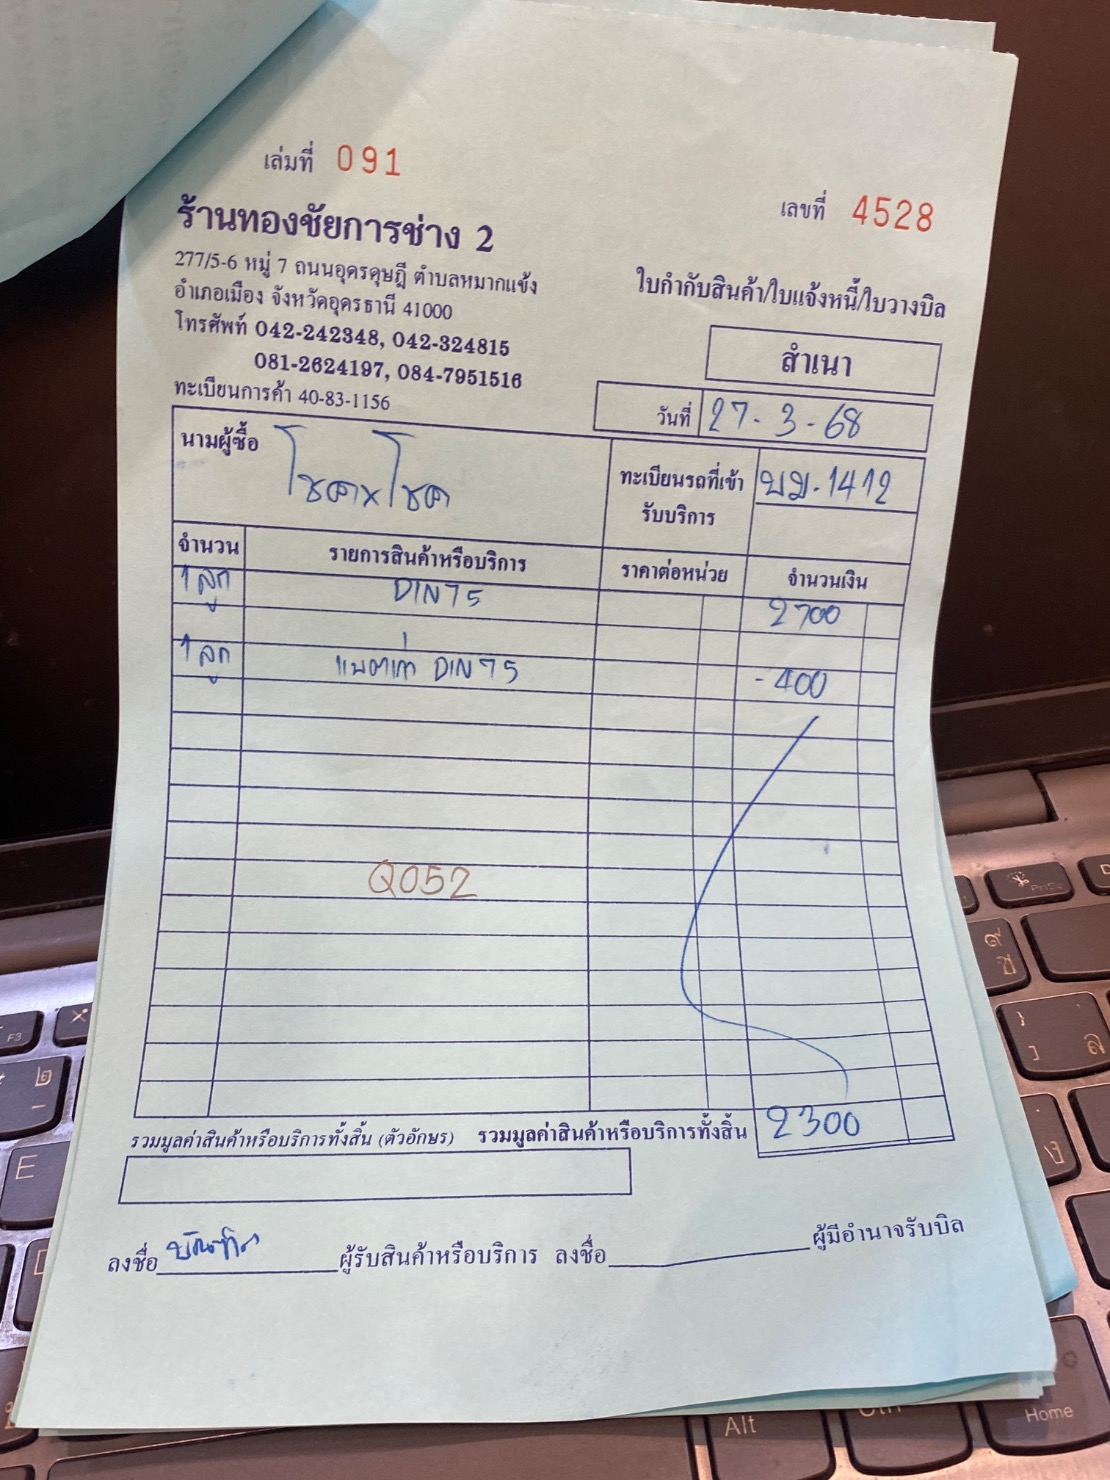 เล่มที่ 091
เลขที่ 4528
ร้านทองชัยการช่าง 2
277/5-6 หมู่ 7 ถนนอุดรดุษฎี ตำบลหมากแข้ง
อำเภอเมือง จังหวัดอุดรธานี 41000
โทรศัพท์ 042-242348, 042-324815
081-2624197, 084-7951516
ทะเบียนการค้า 40-83-1156
ใบกำกับสินค้า/ใบแจ้งหนี้/ใบวางบิล
สำเนา
วันที่ 27-3-68
นามผู้ซื้อ โชคxโชค
ทะเบียนรถที่เข้ารับบริการ บม.1412
จำนวน รายการสินค้าหรือบริการ ราคาต่อหน่วย จำนวนเงิน
1 ลูก DIN75 2700
1 ลูก แบตเก่า DIN75 -400
Q052
รวมมูลค่าสินค้าหรือบริการทั้งสิ้น (ตัวอักษร) รวมมูลค่าสินค้าหรือบริการทั้งสิ้น 2300
ลงชื่อ ผู้รับสินค้าหรือบริการ ลงชื่อ ผู้มีอำนาจรับบิล
F3
E
Alt
Home